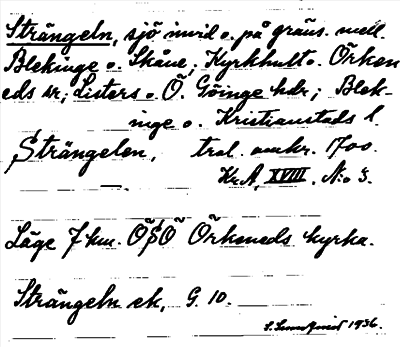 Strängeln, sjö invid o. på gräns. mell.
Blekinge o. Skåne, Kyrkhult o. Örken
eds sr; Listers o. Ö. Göinge hdr; Blek-
inge o. Kristianstads l.
Strängelen, trol. omkr. 1700.
Kr.A, XVIII, N:o 3.
Läge 7 km. ÖSÖ Örkeneds kyrka.
Strängeln ek, G. 10.
1936.